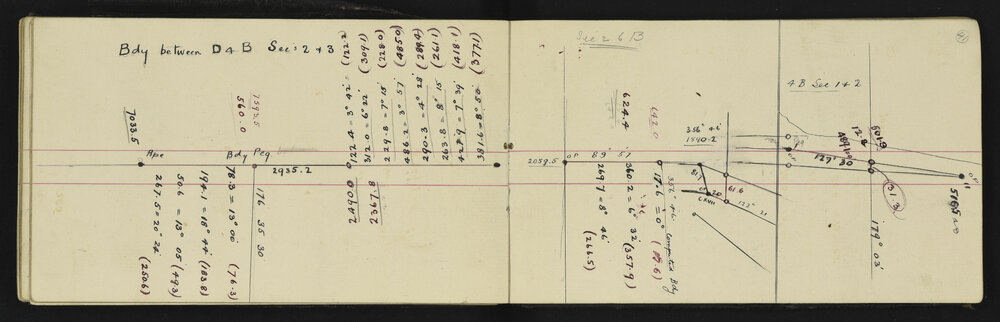 Bdy between D & B Secs 2 & 3
7033.5
Ape
267.5 = 20° 24' (250.6)
506 = 13° 05' (493)
194.1 = 18° 44' (183.8)
78.3 = 13° 00' (76.3)
560.0
Bdy Peg
176 35 30
2935.2
2490.0
2367.8
122.4 = 3° 42' = (122.2)
312.0 = 6° 22' (309.1)
229.8 = 7° 15' (228.0)
486.2 = 3° 57' (485.0)
290.3 = 4° 28' (289.4)
263.8 = 8° 15' (261.1)
421.9 = 7° 39' (418.1)
381.6 = 8° 50' (377.1)
Sec 2 & B
2059.5
OP
89° 51'
624.4
269.7 = 8° 46' (266.5)
360.2 = 6° 32' (357.9)
(642.0)
17.6 = 0° (17.6)
356° 46' Computed Bdy
356° 46'
1440.2
81.7
20
61.6
& B Sec 1 & 2
127° 30
12.2
(31.3)
179° 03'
OP
11